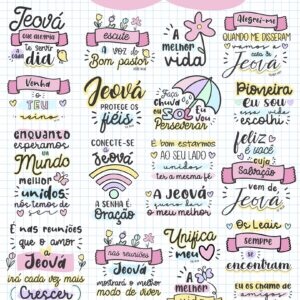 Jeová
que alegria
te servir
cada
dia
escute
A voz do
Bom pastor
A
melhor
vida
Alegrei-me
QUANDO ME DISSERAM
vamos a
casa de
Jeová
Venha
o
TEU
reino
Jeová
PROTEGE OS
fiéis
Faça
chuva ou
SOL
EU VOU
Perseverar
Pioneira
EU SOU
essa vida
escolhi
enquanto
esperamos
um
Mundo
melhor
unidos
nós temos de
ser
CONECTE-SE
Jeová
A SENHA É
Oração
É bom estarmos
AO SEU LADO
unidos
ter a mesma fé
A JEOVÁ
quero dar o
meu melhor
feliz
é você
cuja
SALVAÇÃO
vem de
Jeová
É nas reuniões
que o amor
a
JEOVÁ
irá cada vez mais
Crescer
nas reuniões
Jeová
mostrará o melhor
modo de viver
Unifica
meu
Os Leais
sempre
se
encontram